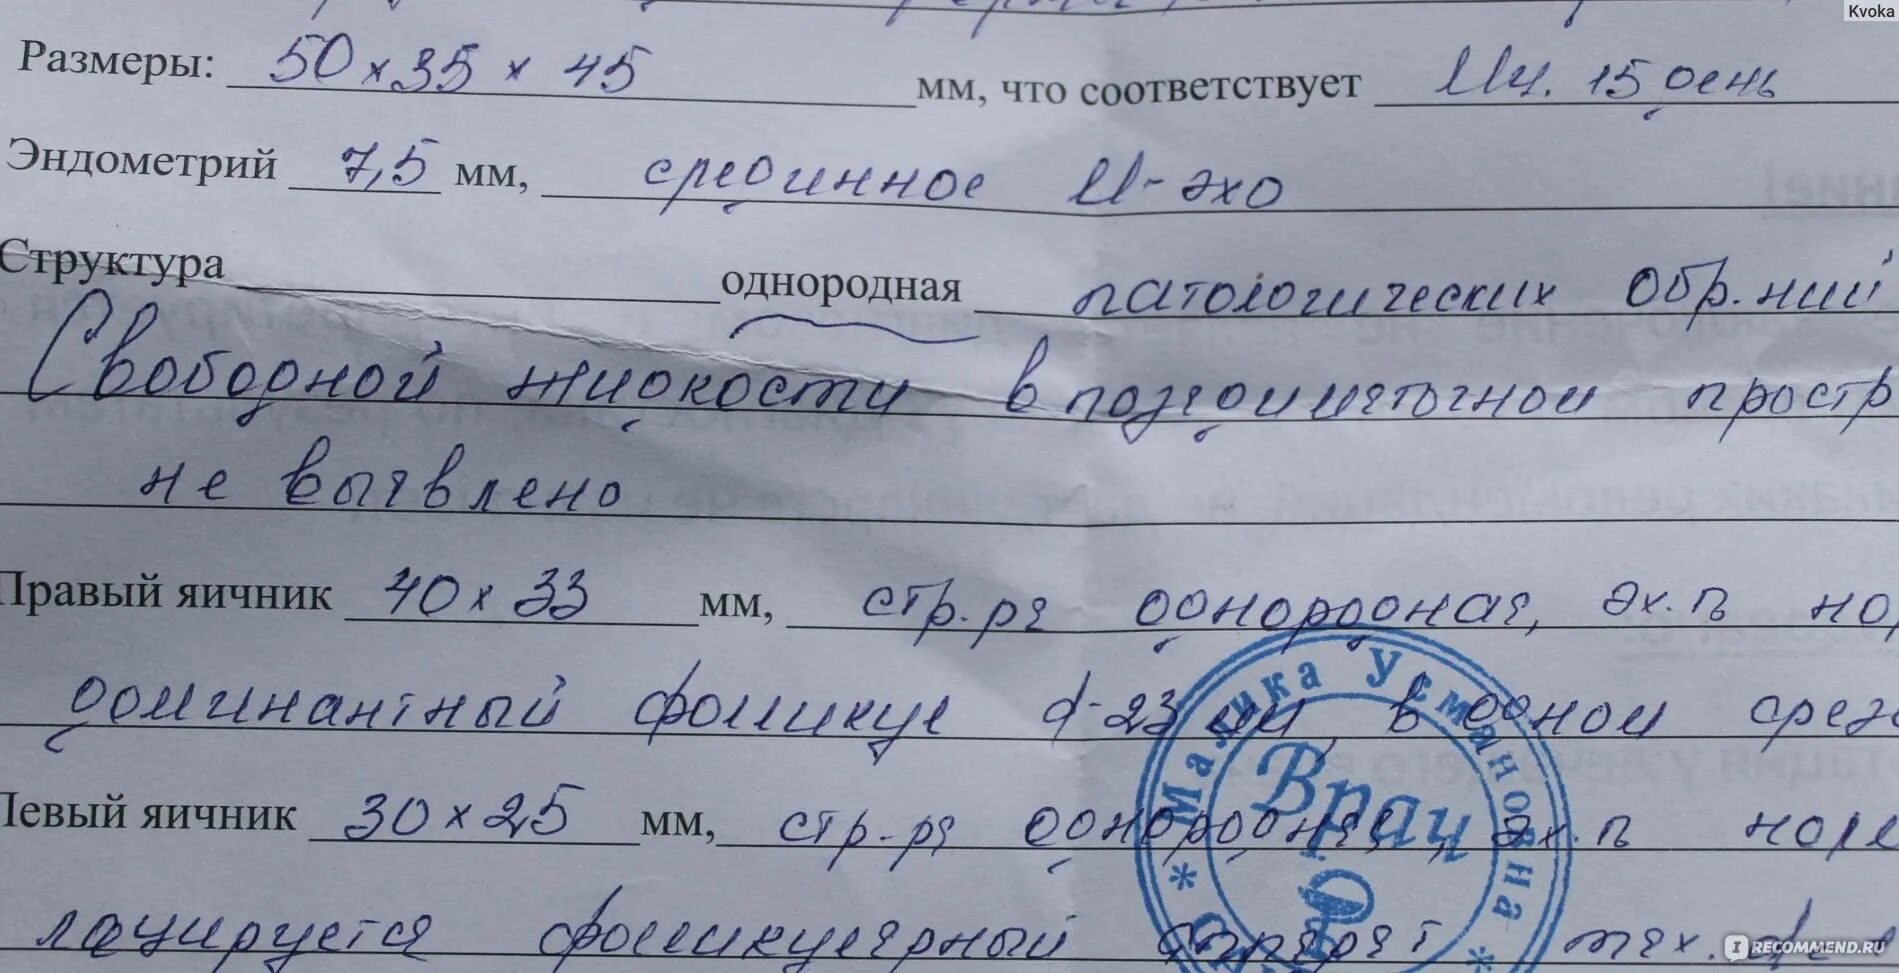 Kvoka
Размеры: 50 х 35 х 45 мм, что соответствует Мц. 15 день
Эндометрий 7,5 мм, срединное М-эхо
Структура однородная патологических обр.ний
Свободной жидкости в позадиматочном простр
не выявлено
Правый яичник 40 х 33 мм, стр.ря однородная, эх.ть но
доминантный фолликул d-23 мм, в одном срез
Левый яичник 30 х 25 мм, стр-ря однородная, эх.ть
лоцируется фолликулярный аппарат
Малика Усмановна
Врач
RECOMMEND.RU